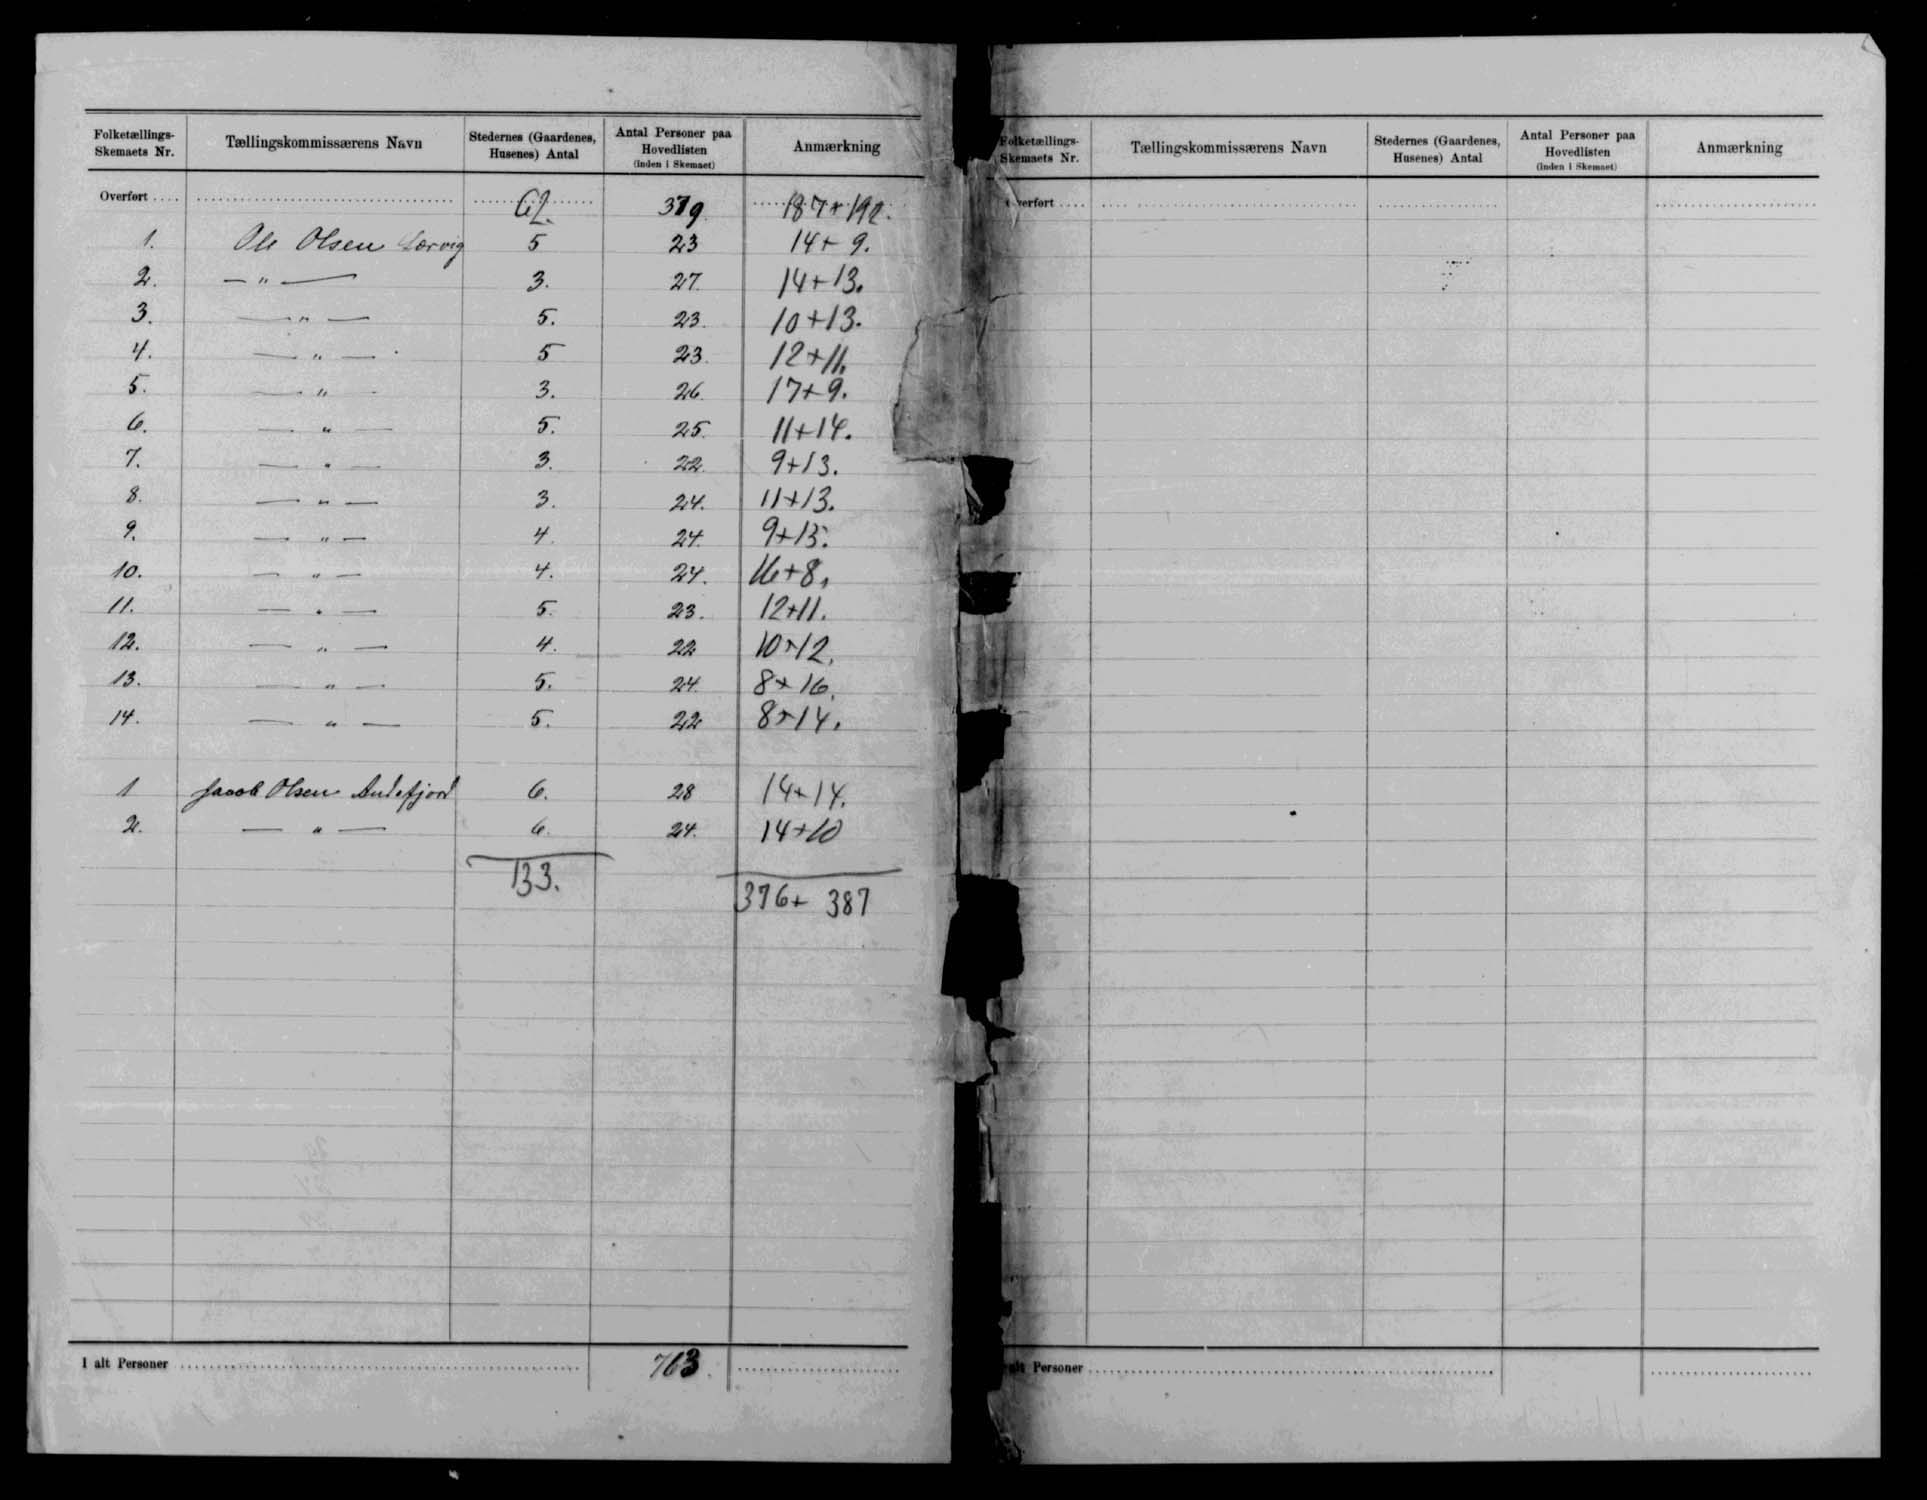 Folketællings-Skemaets Nr. Tællingskommissærens Navn Stedernes (Gaardenes, Husenes) Antal Antal Personer paa Hovedlisten (inden i Skemaet) Anmærkning
Overført 62. 379 187+192.
1. Ole Olsen Lervig 5 23 14+9.
2. — " — 3. 27. 14+13.
3. — " — 5. 23. 10+13.
4. — " — 5 23. 12+11.
5. — " 3. 26. 17+9.
6. — " — 5. 25. 11+14.
7. — " — 3. 22. 9+13.
8. — " — 3. 24. 11+13.
9. — " — 4. 24.
10. — " — 4. 24. 16+8.
11. — " — 5. 23. 12+11.
12. — " — 4. 22 10+12.
13. — " — 5. 24. 8+16.
14. — " — 5. 22 8+14.
1 Jacob Olsen 6. 28 14+14.
2. — " — 6. 24. 14+10
133. 376+387
I alt Personer 763.
Folketællings-Skemaets Nr. Tællingskommissærens Navn Stedernes (Gaardenes, Husenes) Antal Antal Personer paa Hovedlisten (inden i Skemaet) Anmærkning
verført
alt Personer